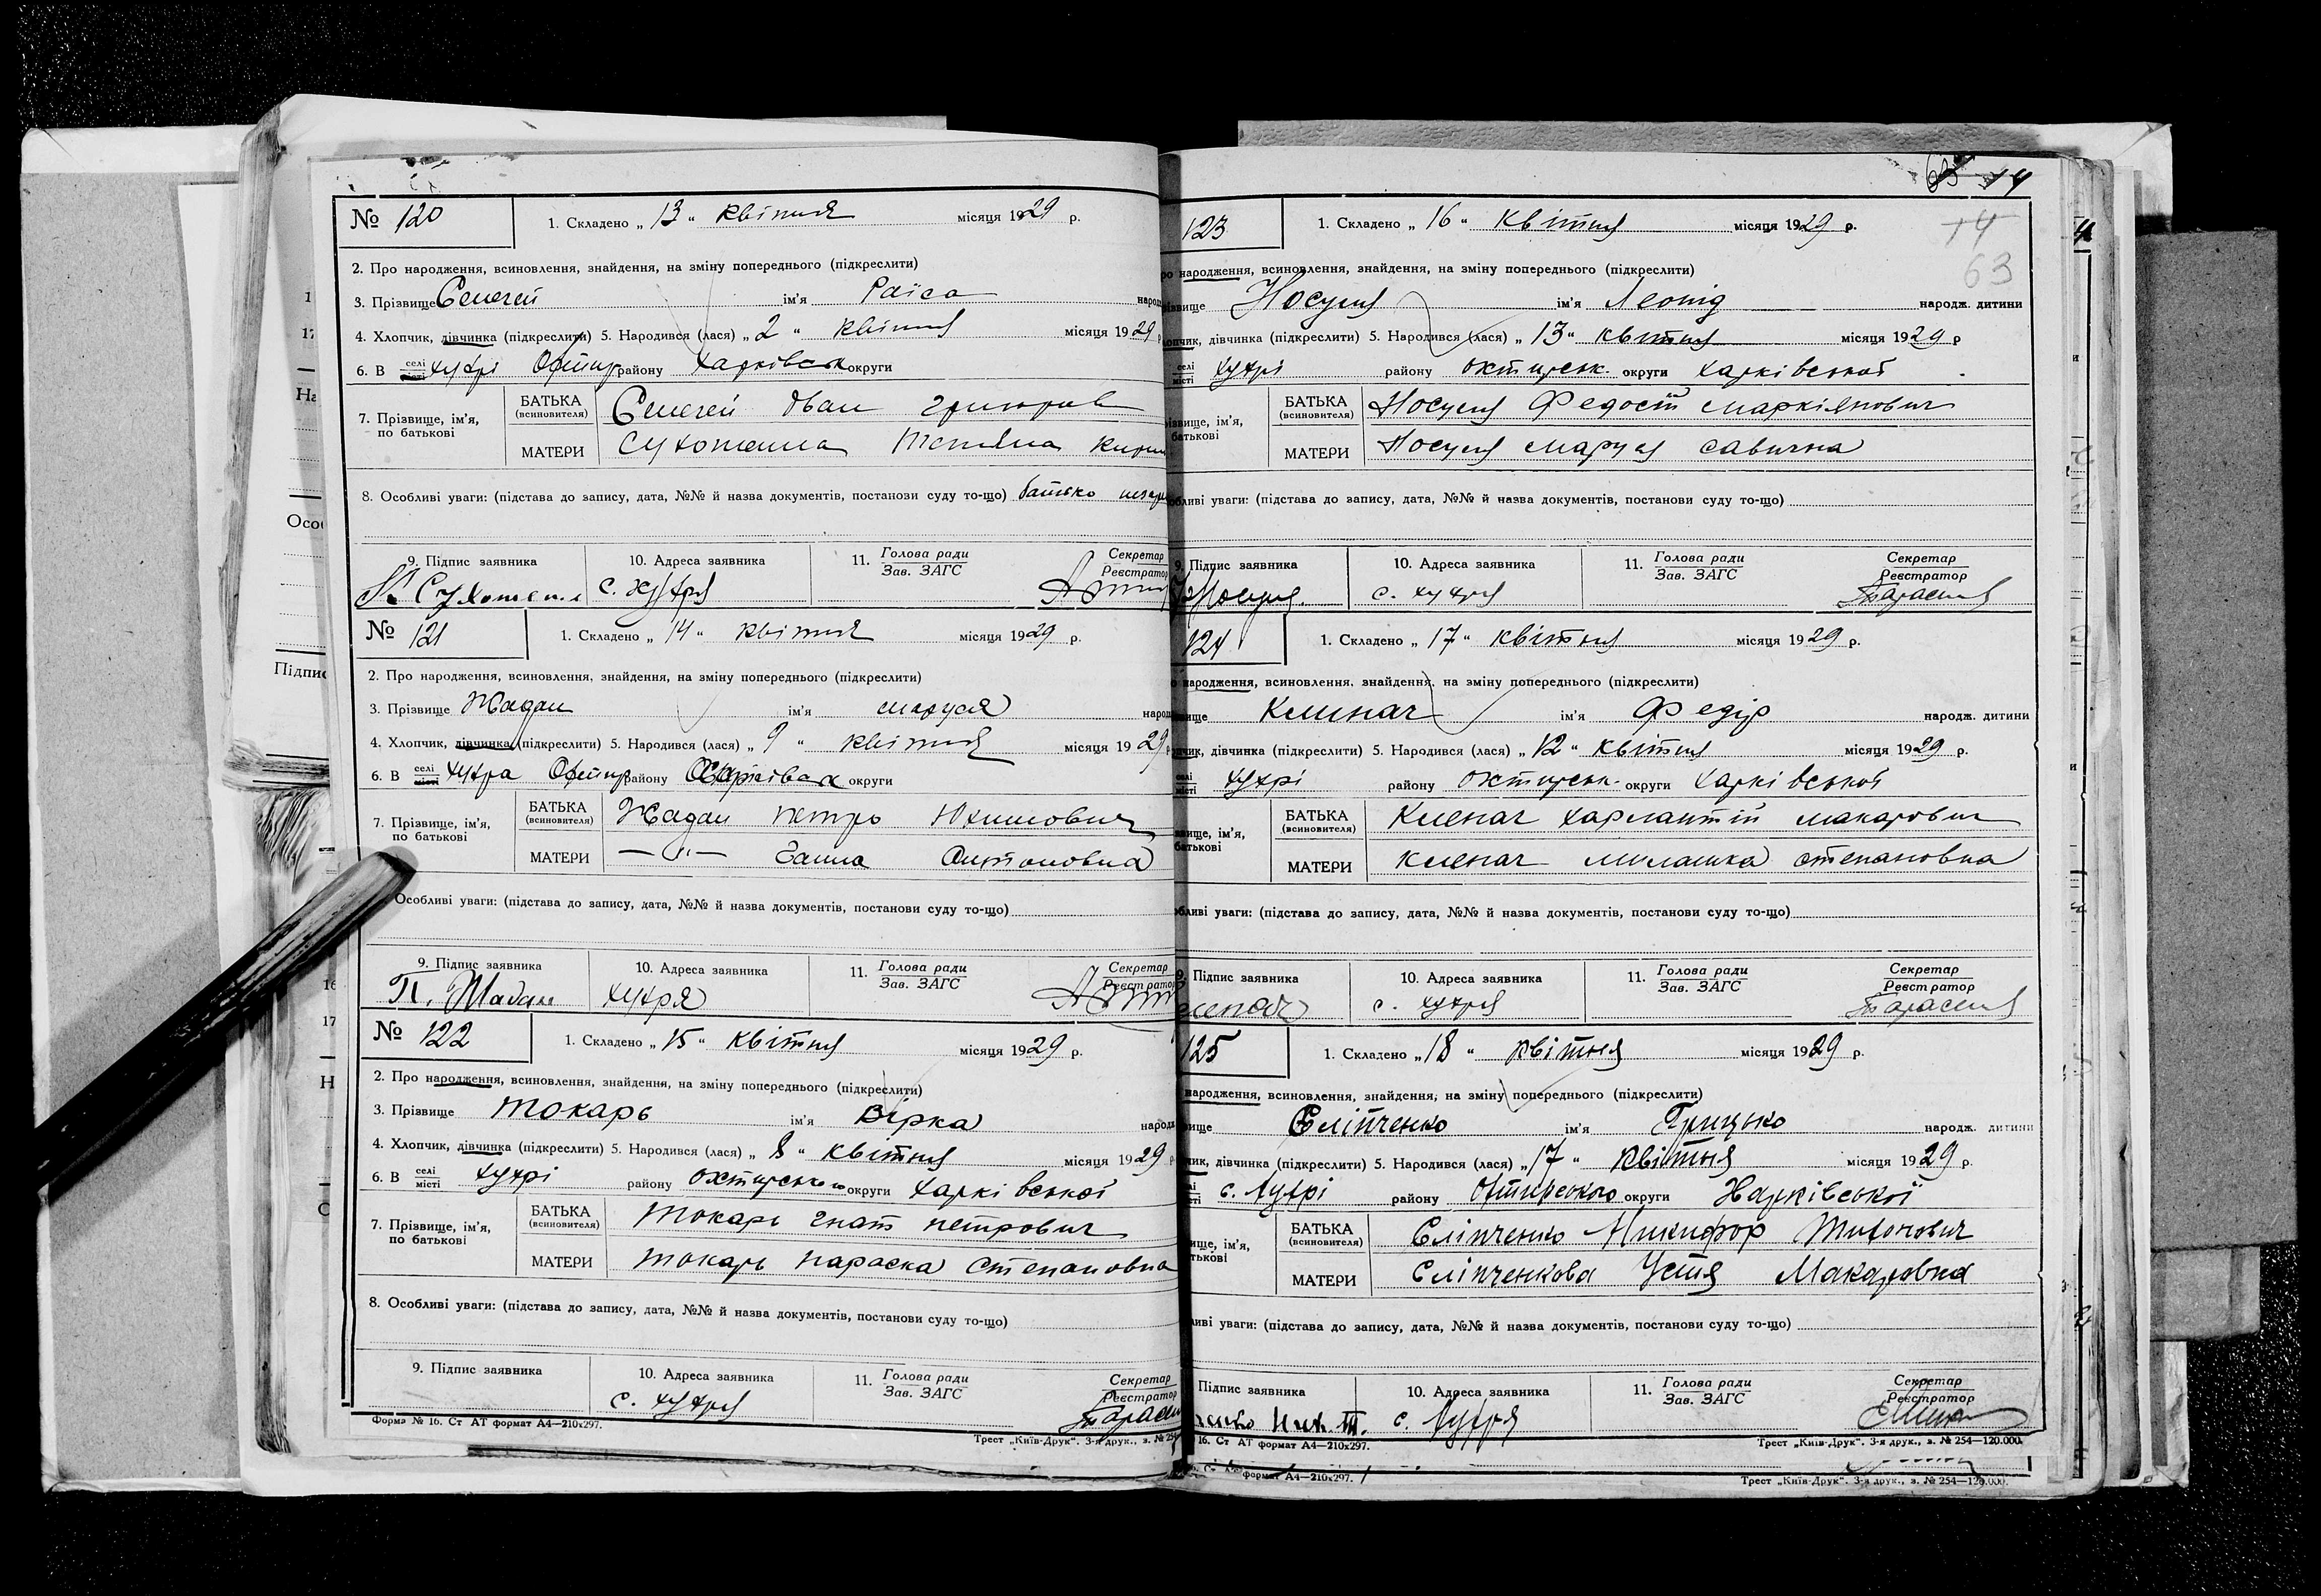 № 120
1. Складено „ 13 “ квітня місяця 1929 р.
2. Про народження, всиновлення, знайдення, на зміну попереднього (підкреслити)
3. Прізвище ім'я Раїса народ
4. Хлопчик, дівчинка (підкреслити) 5. Народився (лася) „ 2 “ квітня місяця 1929 р
6. В селі місті Хухрі району Харківськ округи
7. Прізвище, ім'я, по батькові
БАТЬКА (всиновителя) Іван
МАТЕРИ Тетяна
8. Особливі уваги: (підстава до запису, дата, №№ й назва документів, постанови суду то-що) батько
9. Підпис заявника 10. Адреса заявника 11. Голова ради Зав. ЗАГС Секретар Реєстратор
с. Хухря
№ 121
1. Складено „ 14 “ квітня місяця 1929 р.
2. Про народження, всиновлення, знайдення, на зміну попереднього (підкреслити)
3. Прізвище Жадан ім'я Маруся народ
4. Хлопчик, дівчинка (підкреслити) 5. Народився (лася) „ 9 “ квітня місяця 1929 р
6. В селі місті Хухра району округи
7. Прізвище, ім'я, по батькові
БАТЬКА (всиновителя) Жадан Петро Юхимович
МАТЕРИ — „ — Ганна Антоновна
Особливі уваги: (підстава до запису, дата, №№ й назва документів, постанови суду то-що)
9. Підпис заявника 10. Адреса заявника 11. Голова ради Зав. ЗАГС Секретар Реєстратор
П. Жадан Хухря
№ 122
1. Складено „ 15 “ квітня місяця 1929 р.
2. Про народження, всиновлення, знайдення, на зміну попереднього (підкреслити)
3. Прізвище Токарь ім'я Вірка народж
4. Хлопчик, дівчинка (підкреслити) 5. Народився (лася) „ 8 “ квітня місяця 1929 р
6. В селі місті Хухрі району Охтирського округи Харківської
7. Прізвище, ім'я, по батькові
БАТЬКА (всиновителя) Токарь Гнат Петрович
МАТЕРИ Токарь Параска Степановна
8. Особливі уваги: (підстава до запису, дата, №№ й назва документів, постанови суду то-що)
9. Підпис заявника 10. Адреса заявника 11. Голова ради Зав. ЗАГС Секретар Реєстратор
с. Хухря
Форма № 16. Ст АТ формат А4—210х297.
Трест „Київ-Друк“. 3-я друк., з. № 254
63 14
14
63
123
1. Складено „ 16 “ квітня місяця 1929 р.
народження, всиновлення, знайдення, на зміну попереднього (підкреслити)
Носуля ім'я Леонід народж. дитини
дівчинка (підкреслити) 5. Народився (лася) „ 13 “ квітня місяця 1929 р
селі місті Хухрі району Охтирськ. округи Харківської
БАТЬКА (всиновителя) Носуля Федост Маркіянович
МАТЕРИ Носуля Маруся Савична
уваги: (підстава до запису, дата, №№ й назва документів, постанови суду то-що)
9. Підпис заявника 10. Адреса заявника 11. Голова ради Зав. ЗАГС Секретар Реєстратор
Носуля с. Хухря
124
1. Складено „ 17 “ квітня місяця 1929 р.
народження, всиновлення, знайдення, на зміну попереднього (підкреслити)
Кленач ім'я Федір народж. дитини
дівчинка (підкреслити) 5. Народився (лася) „ 12 “ квітня місяця 1929 р.
селі місті Хухрі району Охтирськ. округи Харківської
БАТЬКА (всиновителя) Кленач Харлантій Макарович
МАТЕРИ Кленач Милашка Степановна
уваги: (підстава до запису, дата, №№ й назва документів, постанови суду то-що)
Підпис заявника 10. Адреса заявника 11. Голова ради Зав. ЗАГС Секретар Реєстратор
с. Хухря
125
1. Складено „ 18 “ квітня місяця 1929 р.
народження, всиновлення, знайдення, на зміну попереднього (підкреслити)
Єліпченко ім'я Грицько народж. дитини
дівчинка (підкреслити) 5. Народився (лася) „ 17 “ квітня місяця 1929 р.
с. Хухрі району Охтирського округи Харківської
БАТЬКА (всиновителя) Єліпченко Никифор Тихонович
МАТЕРИ Єліпченкова Устя Макаровна
уваги: (підстава до запису, дата, №№ й назва документів, постанови суду то-що)
Підпис заявника 10. Адреса заявника 11. Голова ради Зав. ЗАГС Секретар Реєстратор
с. Хухря
16. Ст АТ формат А4—210х297.
Трест „Київ-Друк“. 3-я друк., з. № 254—120.000.
формат А4—210х297.
Трест „Київ-Друк“. 3-я друк., з. № 254—120.000.